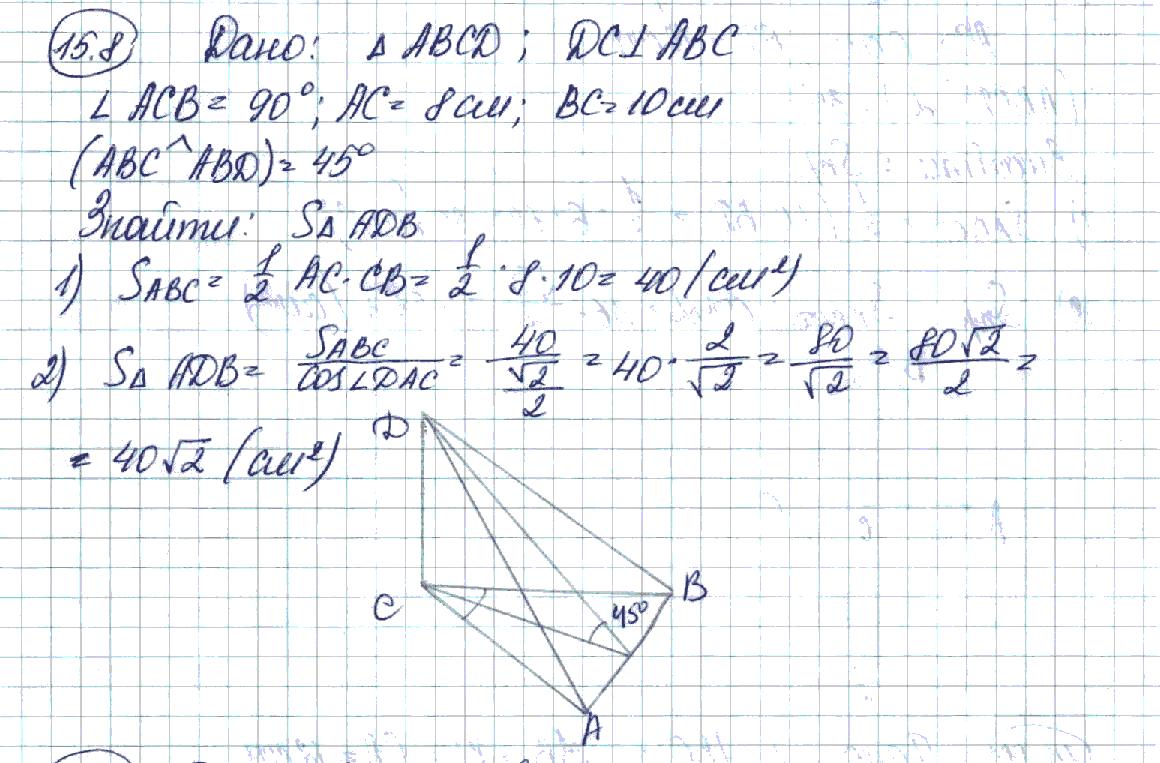 15.8 Дано: △ ABCD; DC⊥ABC
∠ ACB = 90°; AC = 8 см; BC = 10 см
(ABC^ABD) = 45°
Знайти: S△ ADB
1) SABC = 1/2 AC · CB = 1/2 · 8 · 10 = 40 (см²)
2) S△ ADB = SABC/cos∠DAC = 40/(√2/2) = 40 · 2/√2 = 80/√2 = 80√2/2 =
= 40√2 (см²)
D
C
45°
B
A